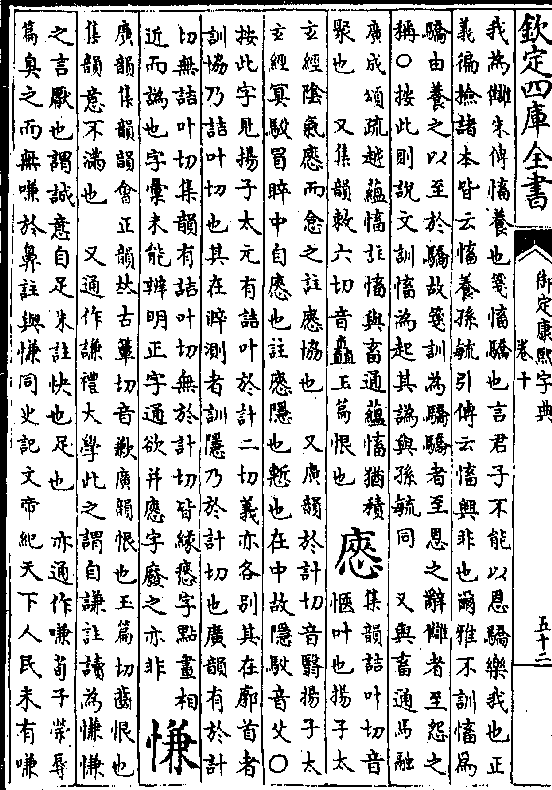 欽定四庫全書
御定康熙字典
卷十
五十二
我為讎朱傳慉養也箋慉驕也言君子不能以恩驕樂我也正
義徧檢諸本皆云慉養孫毓引傳云慉興非也爾雅不訓慉為
驕由養之以至於驕故箋訓為驕驕者至恩之辭讎者至怨之
稱〇按此則說文訓慉為起其譌與孫毓同 又與畜通馬融
廣成頌疏越蘊慉註慉與畜通蘊慉猶積
聚也 又集韻敕六切音矗玉篇恨也
㥦
集韻詰叶切音
愜叶也揚子太
玄經陰氣㥦而念之註㥦協也 又廣韻於計切音翳揚子太
玄經冥駮冒睟中自㥦也註㥦隱也慙也在中故隱駮音父〇
按此字見揚子太元有詰叶於計二切義亦各別其在廓首者
訓協乃詰叶切也其在睟測者訓隱乃於計切也廣韻有於計
切無詰叶切集韻有詰叶切無於計切皆緣㥦字點畫相
近而譌也字彙未能辨明正字通欲并㥦字廢之亦非
慊
廣韻集韻韻會正韻𠀤古簟切音歉廣韻恨也玉篇切齒恨也
集韻意不滿也 又通作謙禮大學此之謂自謙註讀為慊慊
之言厭也謂誠意自足朱註快也足也 亦通作嗛荀子榮辱
篇臭之而無嗛於鼻註與慊同史記文帝紀天下人民未有嗛